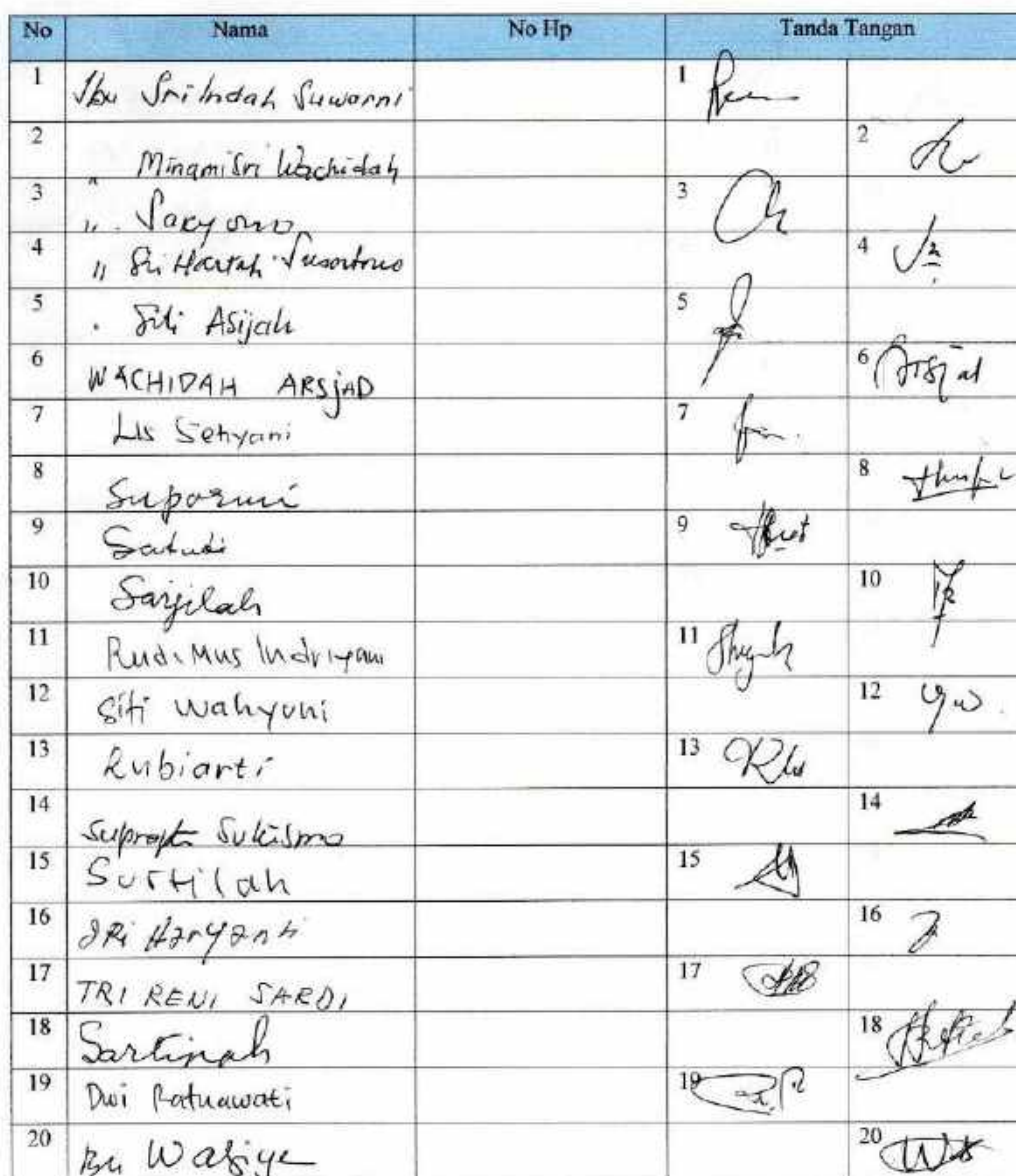 No Nama No Hp Tanda Tangan
1 Ibu Sri Indah Suwarni 1
2 " Minami Sri Wachidah 2
3 " Saryono 3
4 " Sri Hartah Susortono 4
5 . Siti Asijah 5
6 WACHIDAH ARSjAD 6 Arsjad
7 Lis Setyani 7
8 Suparmi 8
9 Satudi 9
10 Sarjilah 10
11 Rudi Mus Indriyani 11
12 Siti Wahyuni 12
13 Rubiarti 13
14 Suprapti Sukismo 14
15 Surtilah 15
16 SRi HarYanti 16
17 TRI RENI SARDI 17
18 Sartinah 18
19 Dwi Ratnawati 19
20 Bu Wagiye 20